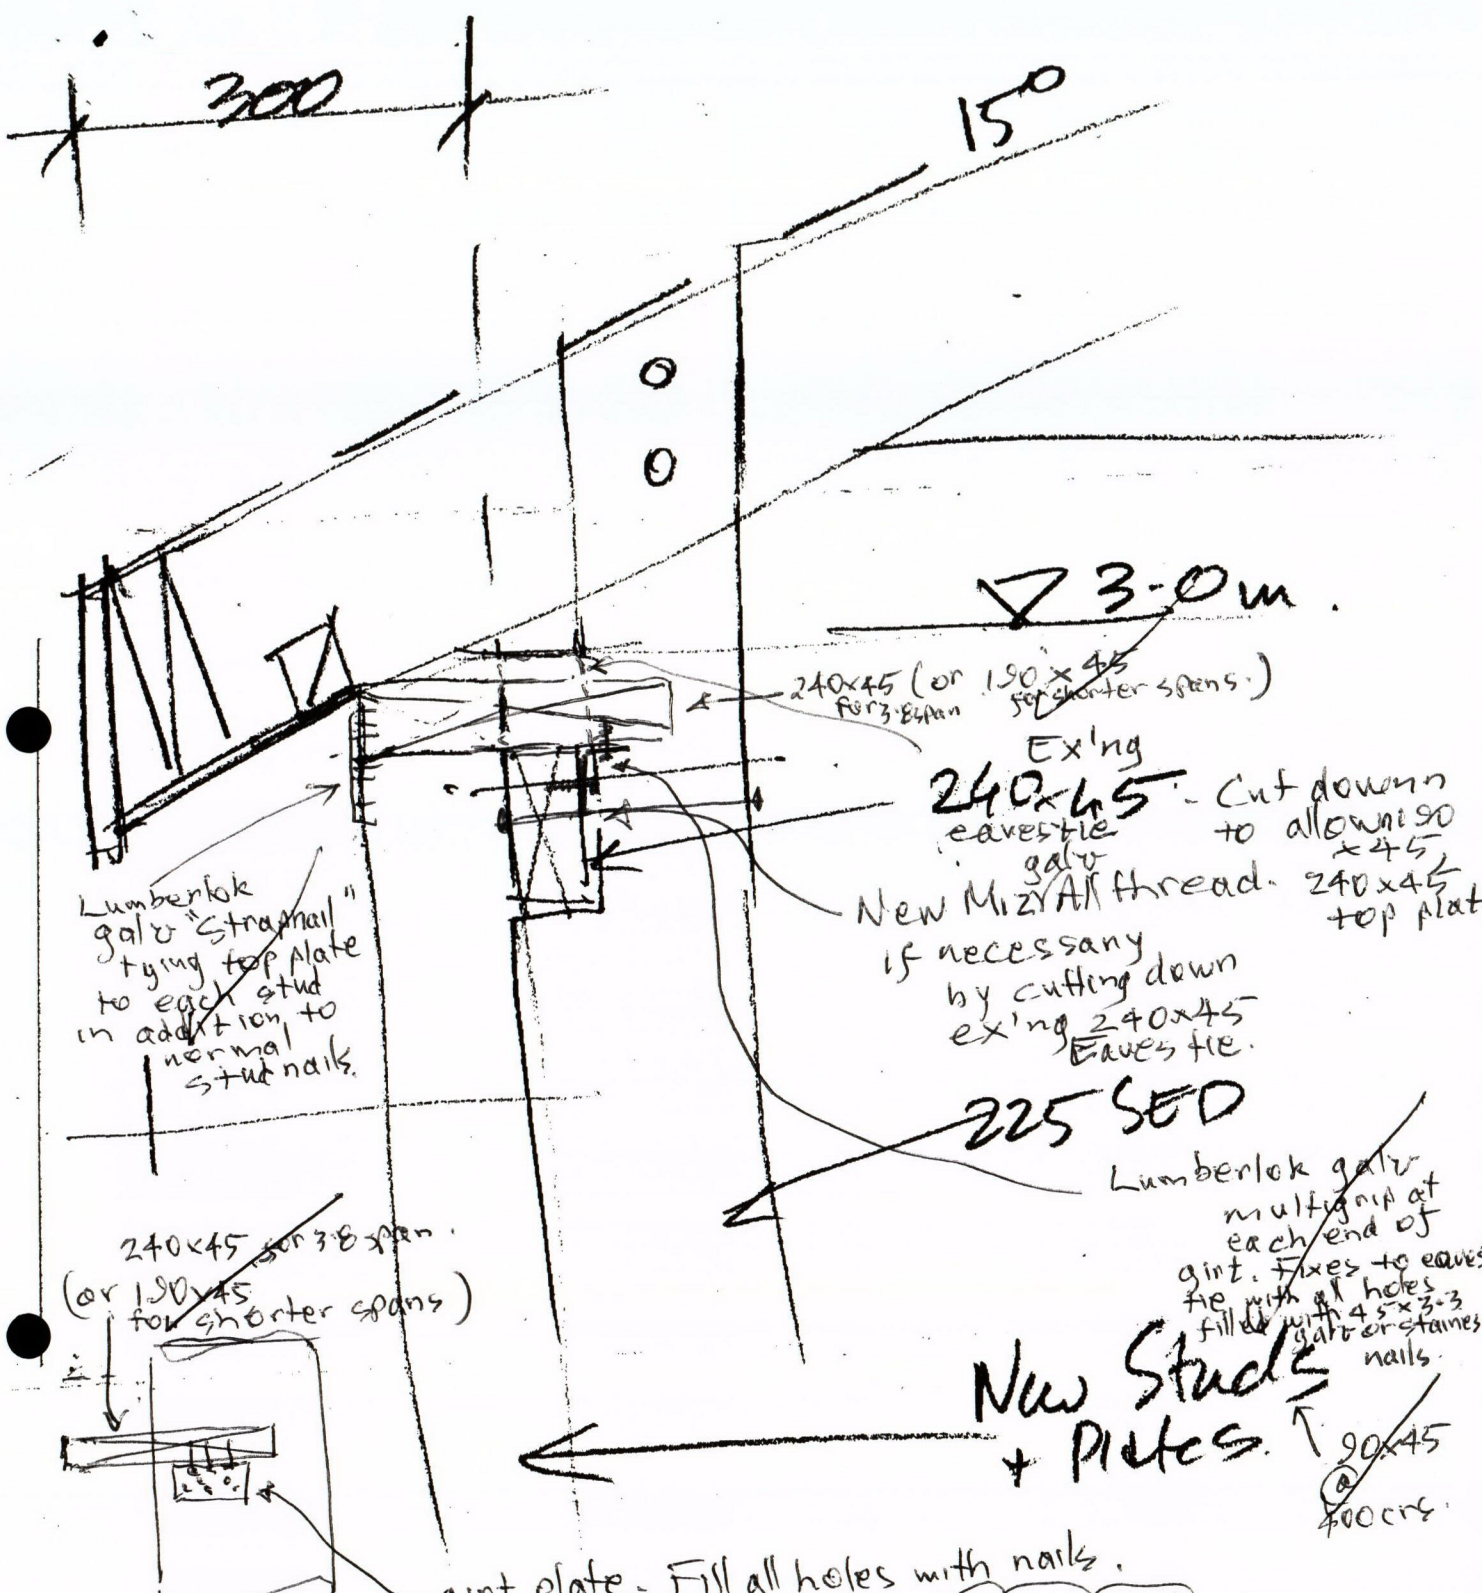 300
15°
3.0m.
240x45 (or 190x45
for 3.8 span for shorter spans.)
Ex'ng
240x45 - Cut down
eaves tie to allow 190
x45,
galv
New M12 All thread. 240x45
top plat
if necessary
by cutting down
ex'ng 240x45
Eaves tie.
Lumberlok
galv "Strapnail"
tying top plate
to each stud
in addition to
normal
stud nails.
225 SED
Lumberlok galv
multigrip at
each end of
girt. Fixes to eaves
tie with all holes
filled with 45x3.3
galv or stainles
nails.
240x45 for 3.8 span.
(or 190x45
for shorter spans)
New Studs
+ Plates.
90x45
@
400crs.
plate - Fill all holes with nails.